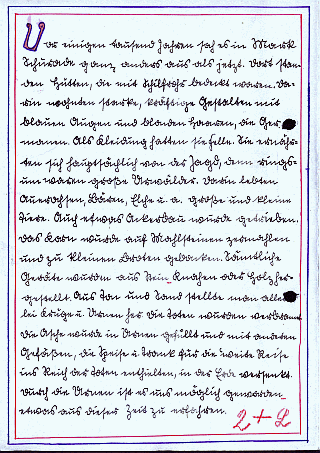 Vor einigen tausend Jahren sah es in Mark
Schurade ganz anders aus als jetzt. Dort stan-
den Hütten, die mit Schilfrohr bedeckt waren. Da-
rin wohnten starke, kräftige Gestalten mit
blauen Augen und blonden Haaren, die Ger
manen. Als Kleidung hatten sie Felle. Sie ernähr-
ten sich hauptsächlich von der Jagd, denn rings-
um waren große Urwälder. Darin lebten
Auerochsen, Bären, Elche u. a. große und kleine
Tiere. Auch etwas Ackerbau wurde getrieben.
Das Korn wurde auf Mahlsteinen zermahlen
und zu kleinen Broten gebacken. Sämtliche
Geräte wurden aus Stein, Knochen oder Holz her-
gestellt. Aus Ton und Sand stellte man aller
lei Krüge u. Urnen her. Die Toten wurden verbrannt
die Asche wurde in Urnen gefüllt und mit anderen
Gefäßen, die Speise u. Trank für die weite Reise
ins Reich der Toten enthielten, in der Erde versenkt.
Durch die Urnen ist es uns möglich geworden
etwas aus dieser Zeit zu erfahren.
2+